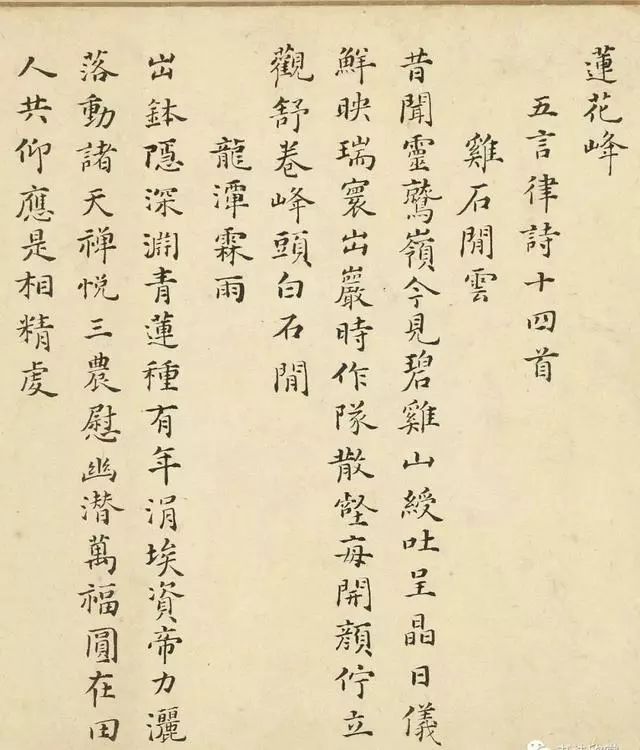 蓮花峰
五言律詩十四首
雞石閒雲
昔聞靈鷲嶺今見碧雞山綬吐呈晶日儀
鮮映瑞寰出巖時作隊散壑每開顏佇立
觀舒卷峰頭白石閒
龍潭霖雨
出鉢隱深淵青蓮種有年涓埃資帝力灑
落動諸天禅悅三農慰幽潜萬福圓在田
人共仰應是相精虔